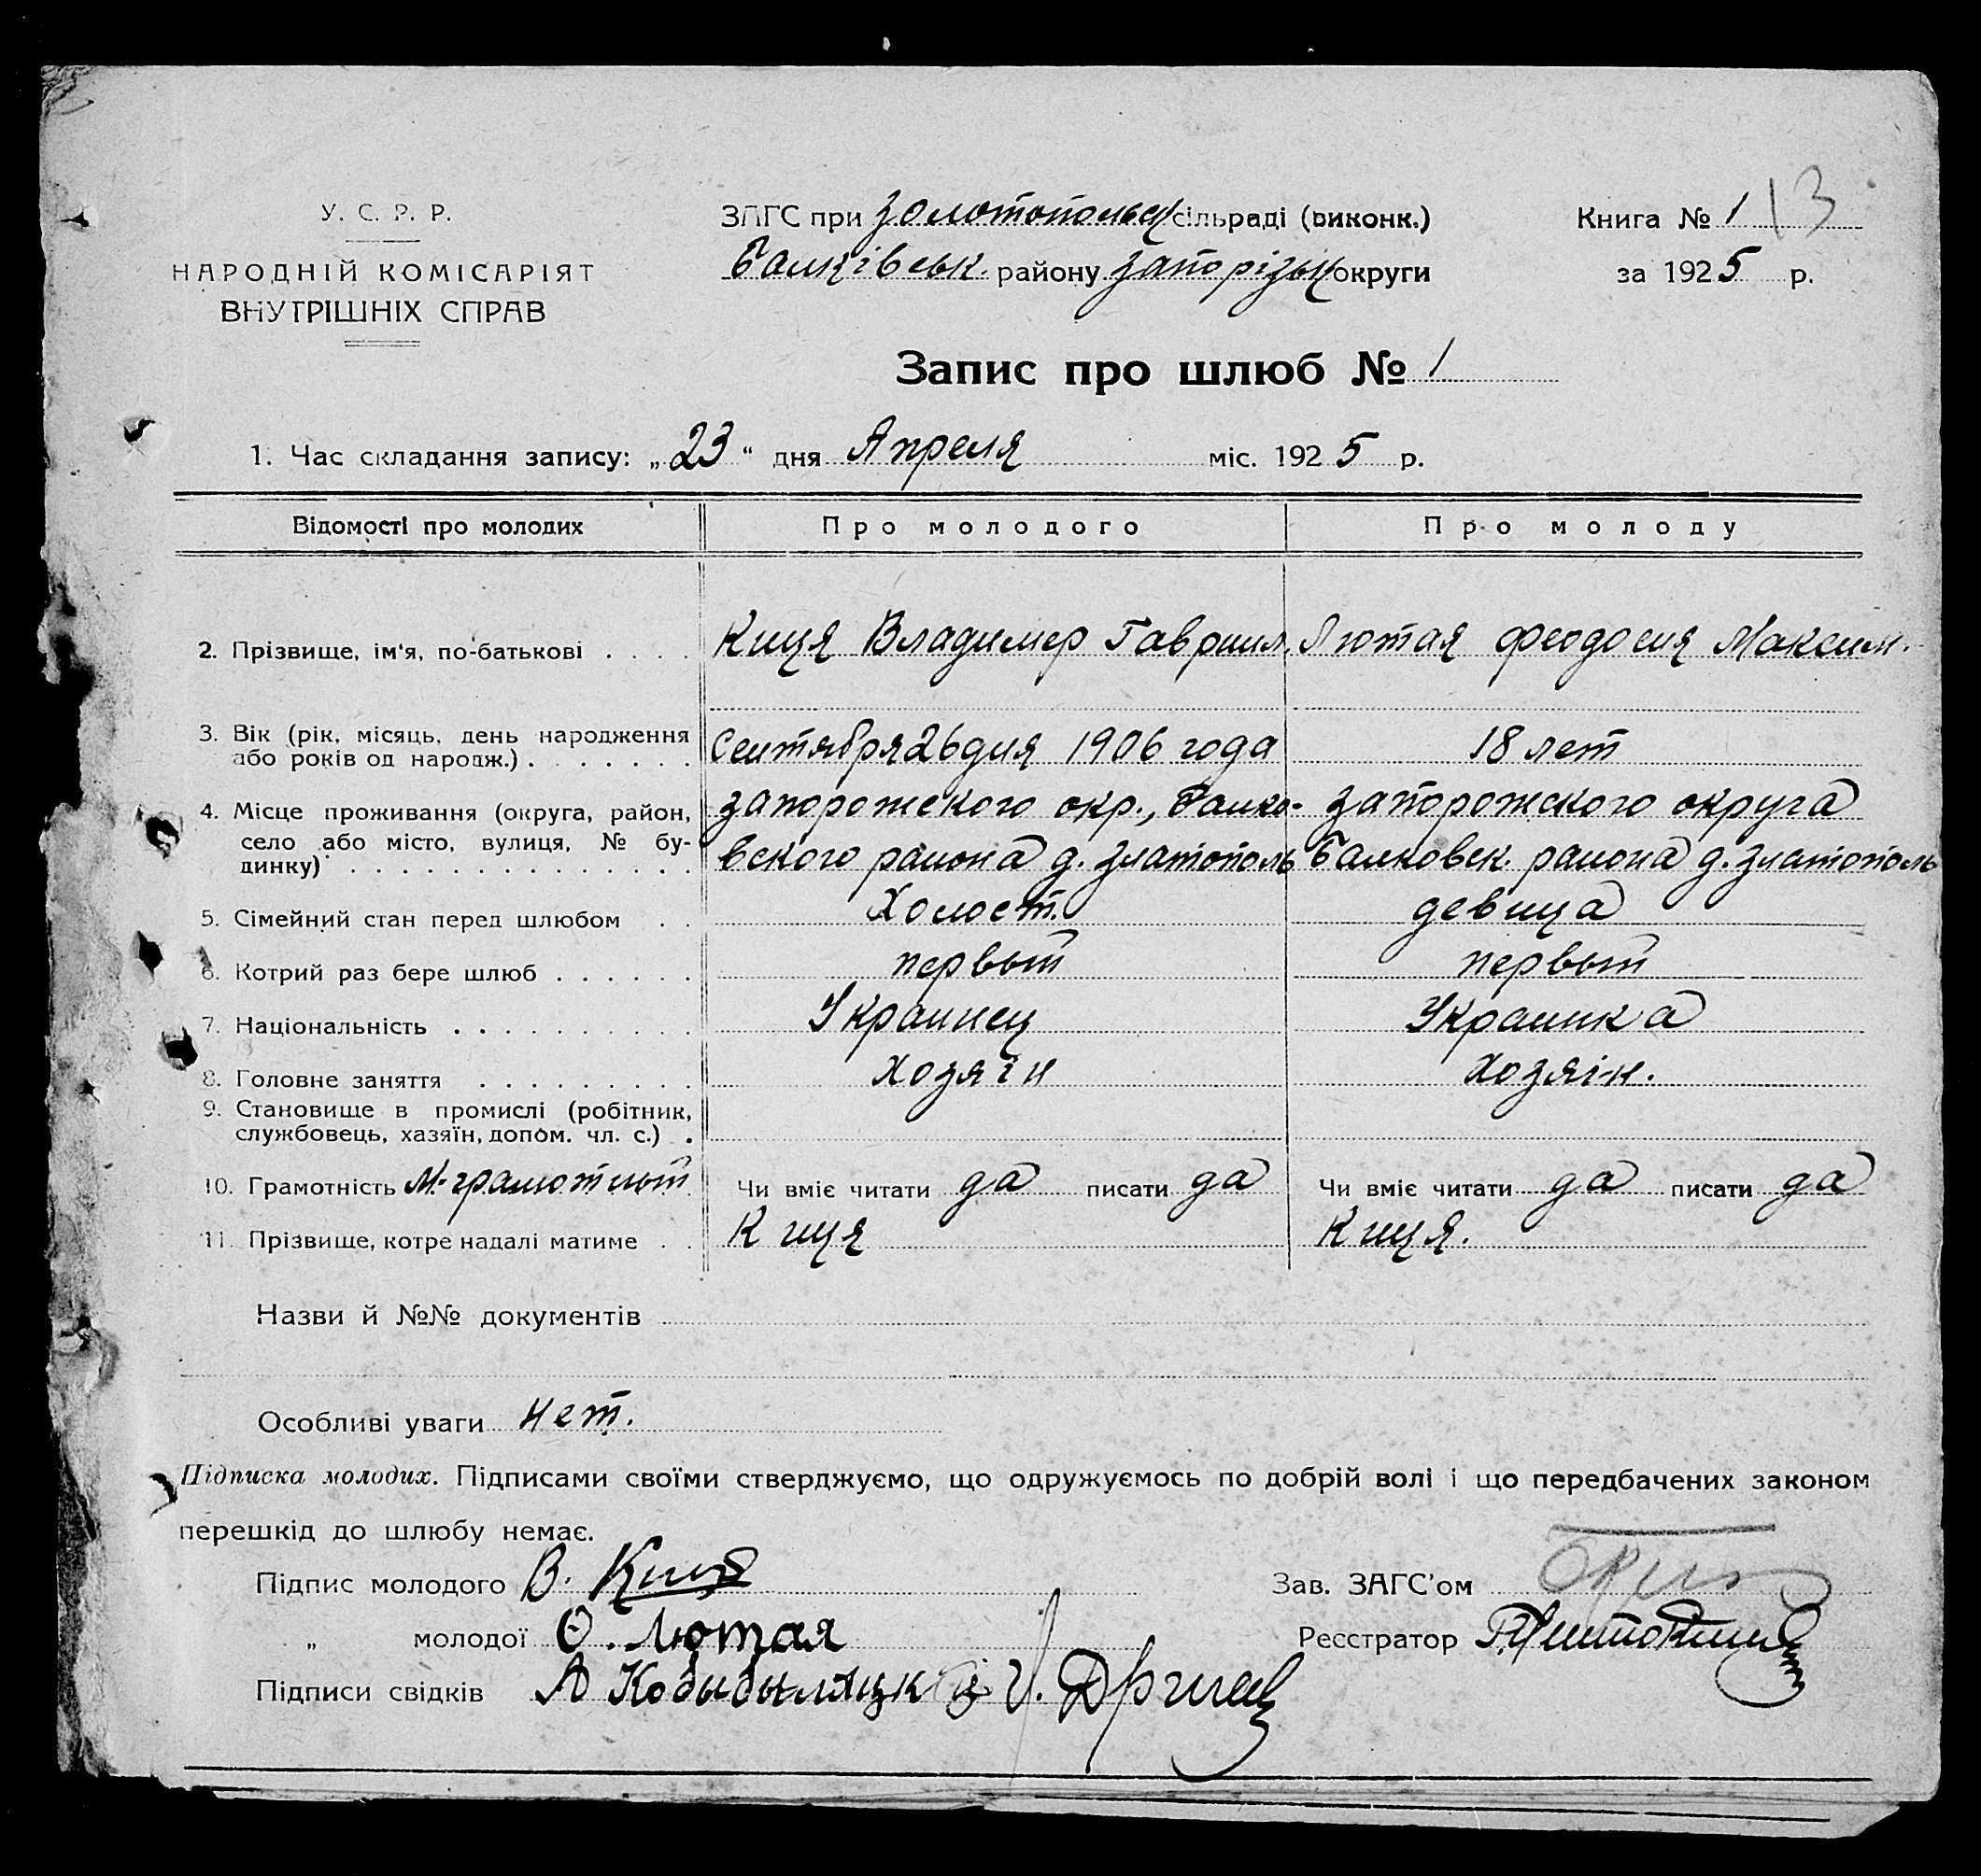 У. С. Р. Р.
НАРОДНІЙ КОМІСАРІЯТ
ВНУТРІШНІХ СПРАВ
ЗАГС при Золотопольськ сільраді (виконк.)
Балківськ. району Запорізьк округи
Книга № 1 13
за 1925 р.
Запис про шлюб № 1
1. Час складання запису: „23“ дня Апреля міс. 1925 р.
Відомості про молодих Про молодого Про молоду
2. Прізвище, ім'я, по-батькові . . . . Киця Владимер Гавриил. Лютая Феодосия Максим.
3. Вік (рік, місяць, день народження
або років од народж.) . . . . . . . Сентября 26 дня 1906 года 18 лет
4. Місце проживання (округа, район,
село або місто, вулиця, № бу-
динку) . . . . . . . . . . . . . .
Запорожского окр., Балко-
вского района д. Златополь
Запорожского округа
Балковск. района д. Златополь
5. Сімейний стан перед шлюбом . . Холост. девица
6. Котрий раз бере шлюб . . . . . . первый первый
7. Національність . . . . . . . . . . Украинец Украинка
8. Головне заняття . . . . . . . . . Хозяін Хозяін.
9. Становище в промислі (робітник,
службовець, хазяїн, допом. чл. с.) .
10. Грамотність М-грамотный Чи вміє читати да писати да Чи вміє читати да писати да
11. Прізвище, котре надалі матиме . . Киця Киця.
Назви й №№ документів
Особливі уваги нет.
Підписка молодих. Підписами своїми стверджуємо, що одружуємось по добрій волі і що передбачених законом
перешкід до шлюбу немає.
Підпис молодого В. Киця
Зав. ЗАГС'ом
„ молодої Ѳ. Лютая
Реєстратор
Підписи свідків А Кобыбыляцкій